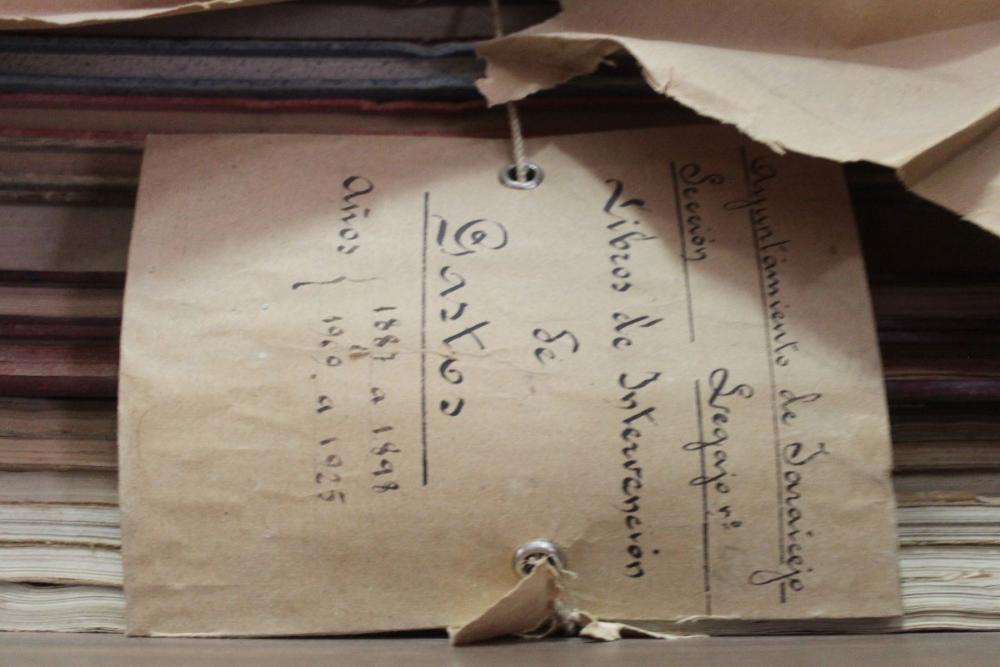 Ayuntamiento de Jaraicejo
Sección Legajo nº
Libros de Intervención
de
Gastos
Años { 1887 a 1898
1960 a 1925